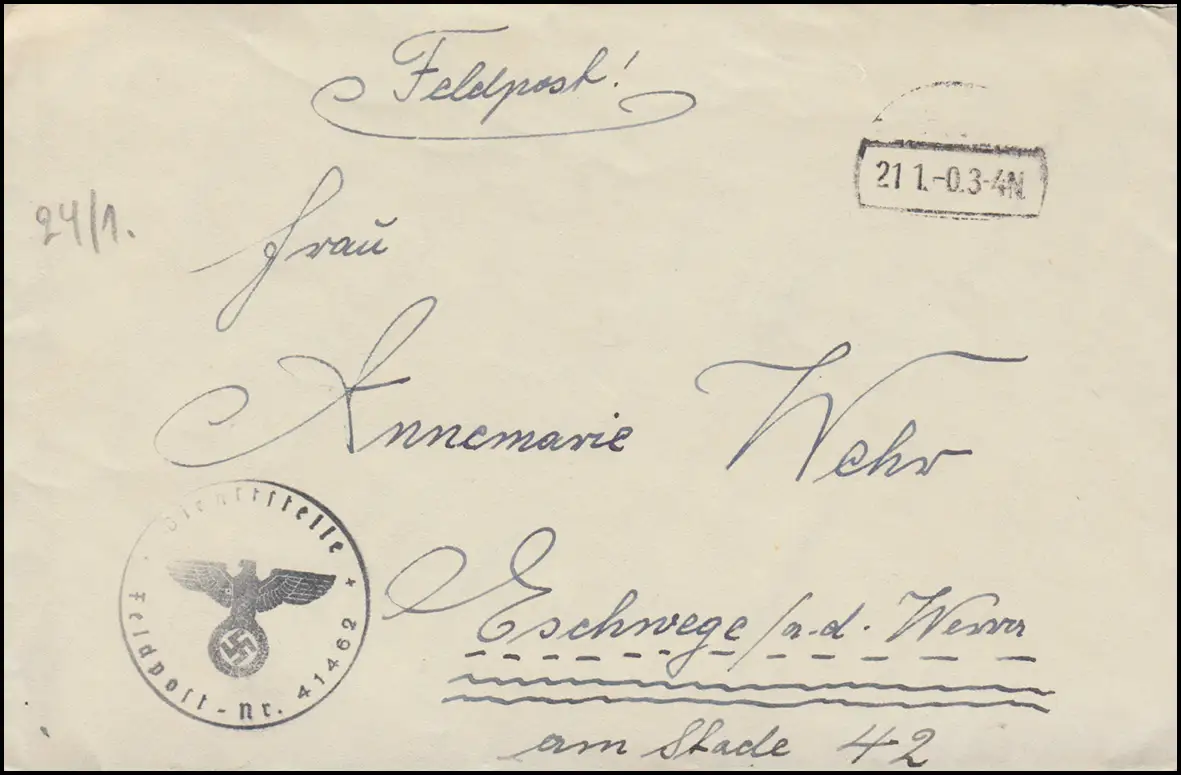 Feldpost!
21 1.-0.3-4N.
24/1.
Frau
Annemarie Wehr
Dienststelle
Feldpost-Nr. 41462
Eschwege /a.d. Werra
am Stade 42